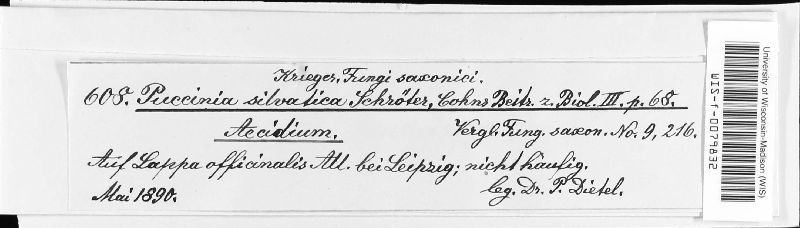 Krieger, Fungi saxonici.
608. Puccinia silvatica Schröter, Cohns Beitr. z. Biol. III. p. 68.
Aecidium. Vergl. Fung. saxon. No. 9, 216.
Auf Lappa officinalis All. bei Leipzig; nicht häufig.
Mai 1890. leg. Dr. P. Dietel.
University of Wisconsin-Madison (WIS)
WIS-f-0079832